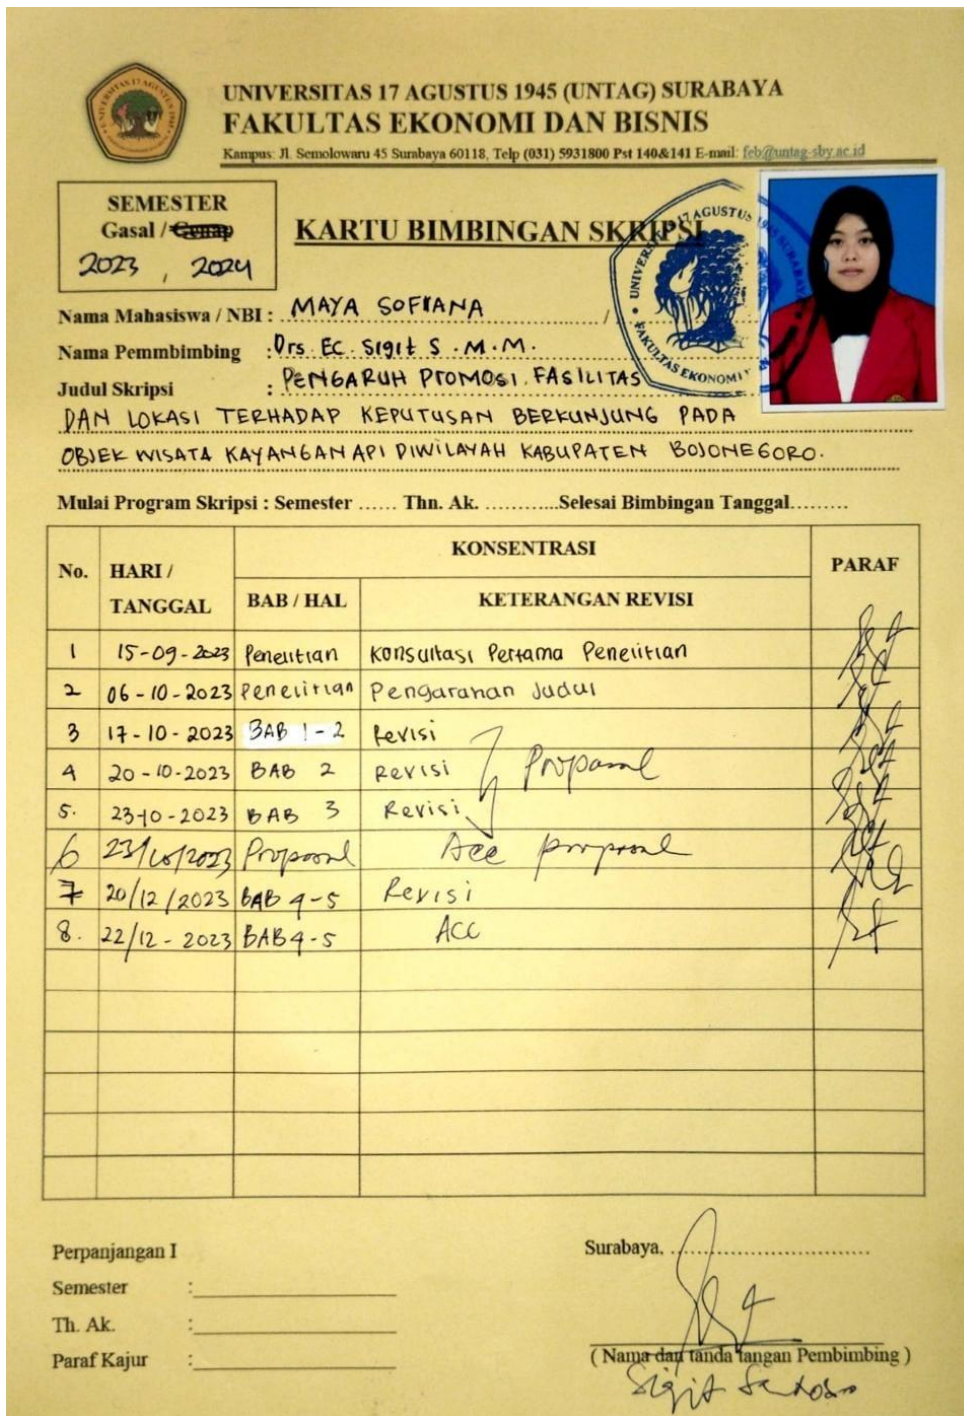 UNIVERSITAS 17 AGUSTUS 1945 (UNTAG) SURABAYA
FAKULTAS EKONOMI DAN BISNIS
Kampus: Jl. Semolowaru 45 Surabaya 60118, Telp (031) 5931800 Pst 140&141 E-mail: feb@untag-sby.ac.id
SEMESTER
Gasal / Genap
2023 , 2024
KARTU BIMBINGAN SKRIPSI
Nama Mahasiswa / NBI : MAYA SOFIANA /
Nama Pemmbimbing : Drs. Ec. Sigit S. M.M.
Judul Skripsi : PENGARUH PROMOSI, FASILITAS
DAN LOKASI TERHADAP KEPUTUSAN BERKUNJUNG PADA
OBJEK WISATA KAYANGAN API DIWILAYAH KABUPATEN BOJONEGORO.
Mulai Program Skripsi : Semester ...... Thn. Ak. .............Selesai Bimbingan Tanggal.........
No. HARI / TANGGAL KONSENTRASI PARAF
BAB / HAL KETERANGAN REVISI
1 15-09-2023 Penelitian Konsultasi Pertama Penelitian
2 06-10-2023 Penelitian Pengarahan Judul
3 17-10-2023 BAB 1-2 Revisi
4 20-10-2023 BAB 2 Revisi Proposal
5. 23-10-2023 BAB 3 Revisi
6 23/10/2023 Proposal Acc proposal
7 20/12/2023 BAB 4-5 Revisi
8. 22/12-2023 BAB 4-5 ACC
Perpanjangan I
Semester :
Th. Ak. :
Paraf Kajur :
Surabaya, ..............................
( Nama dan tanda tangan Pembimbing )
Sigit Santoso